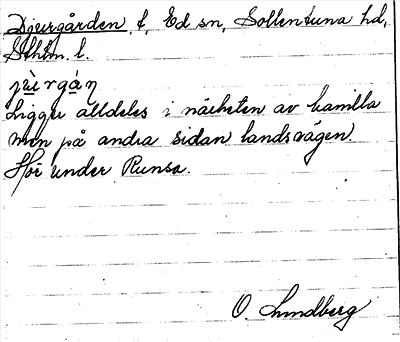 Djurgården t, Ed sn, Sollentuna hd,
Sthlm. l.
jùrgáṇ
Ligger alldeles i närheten av Kamilla
men på andra sidan landsvägen.
Hör under Runsa.
O. Lundberg